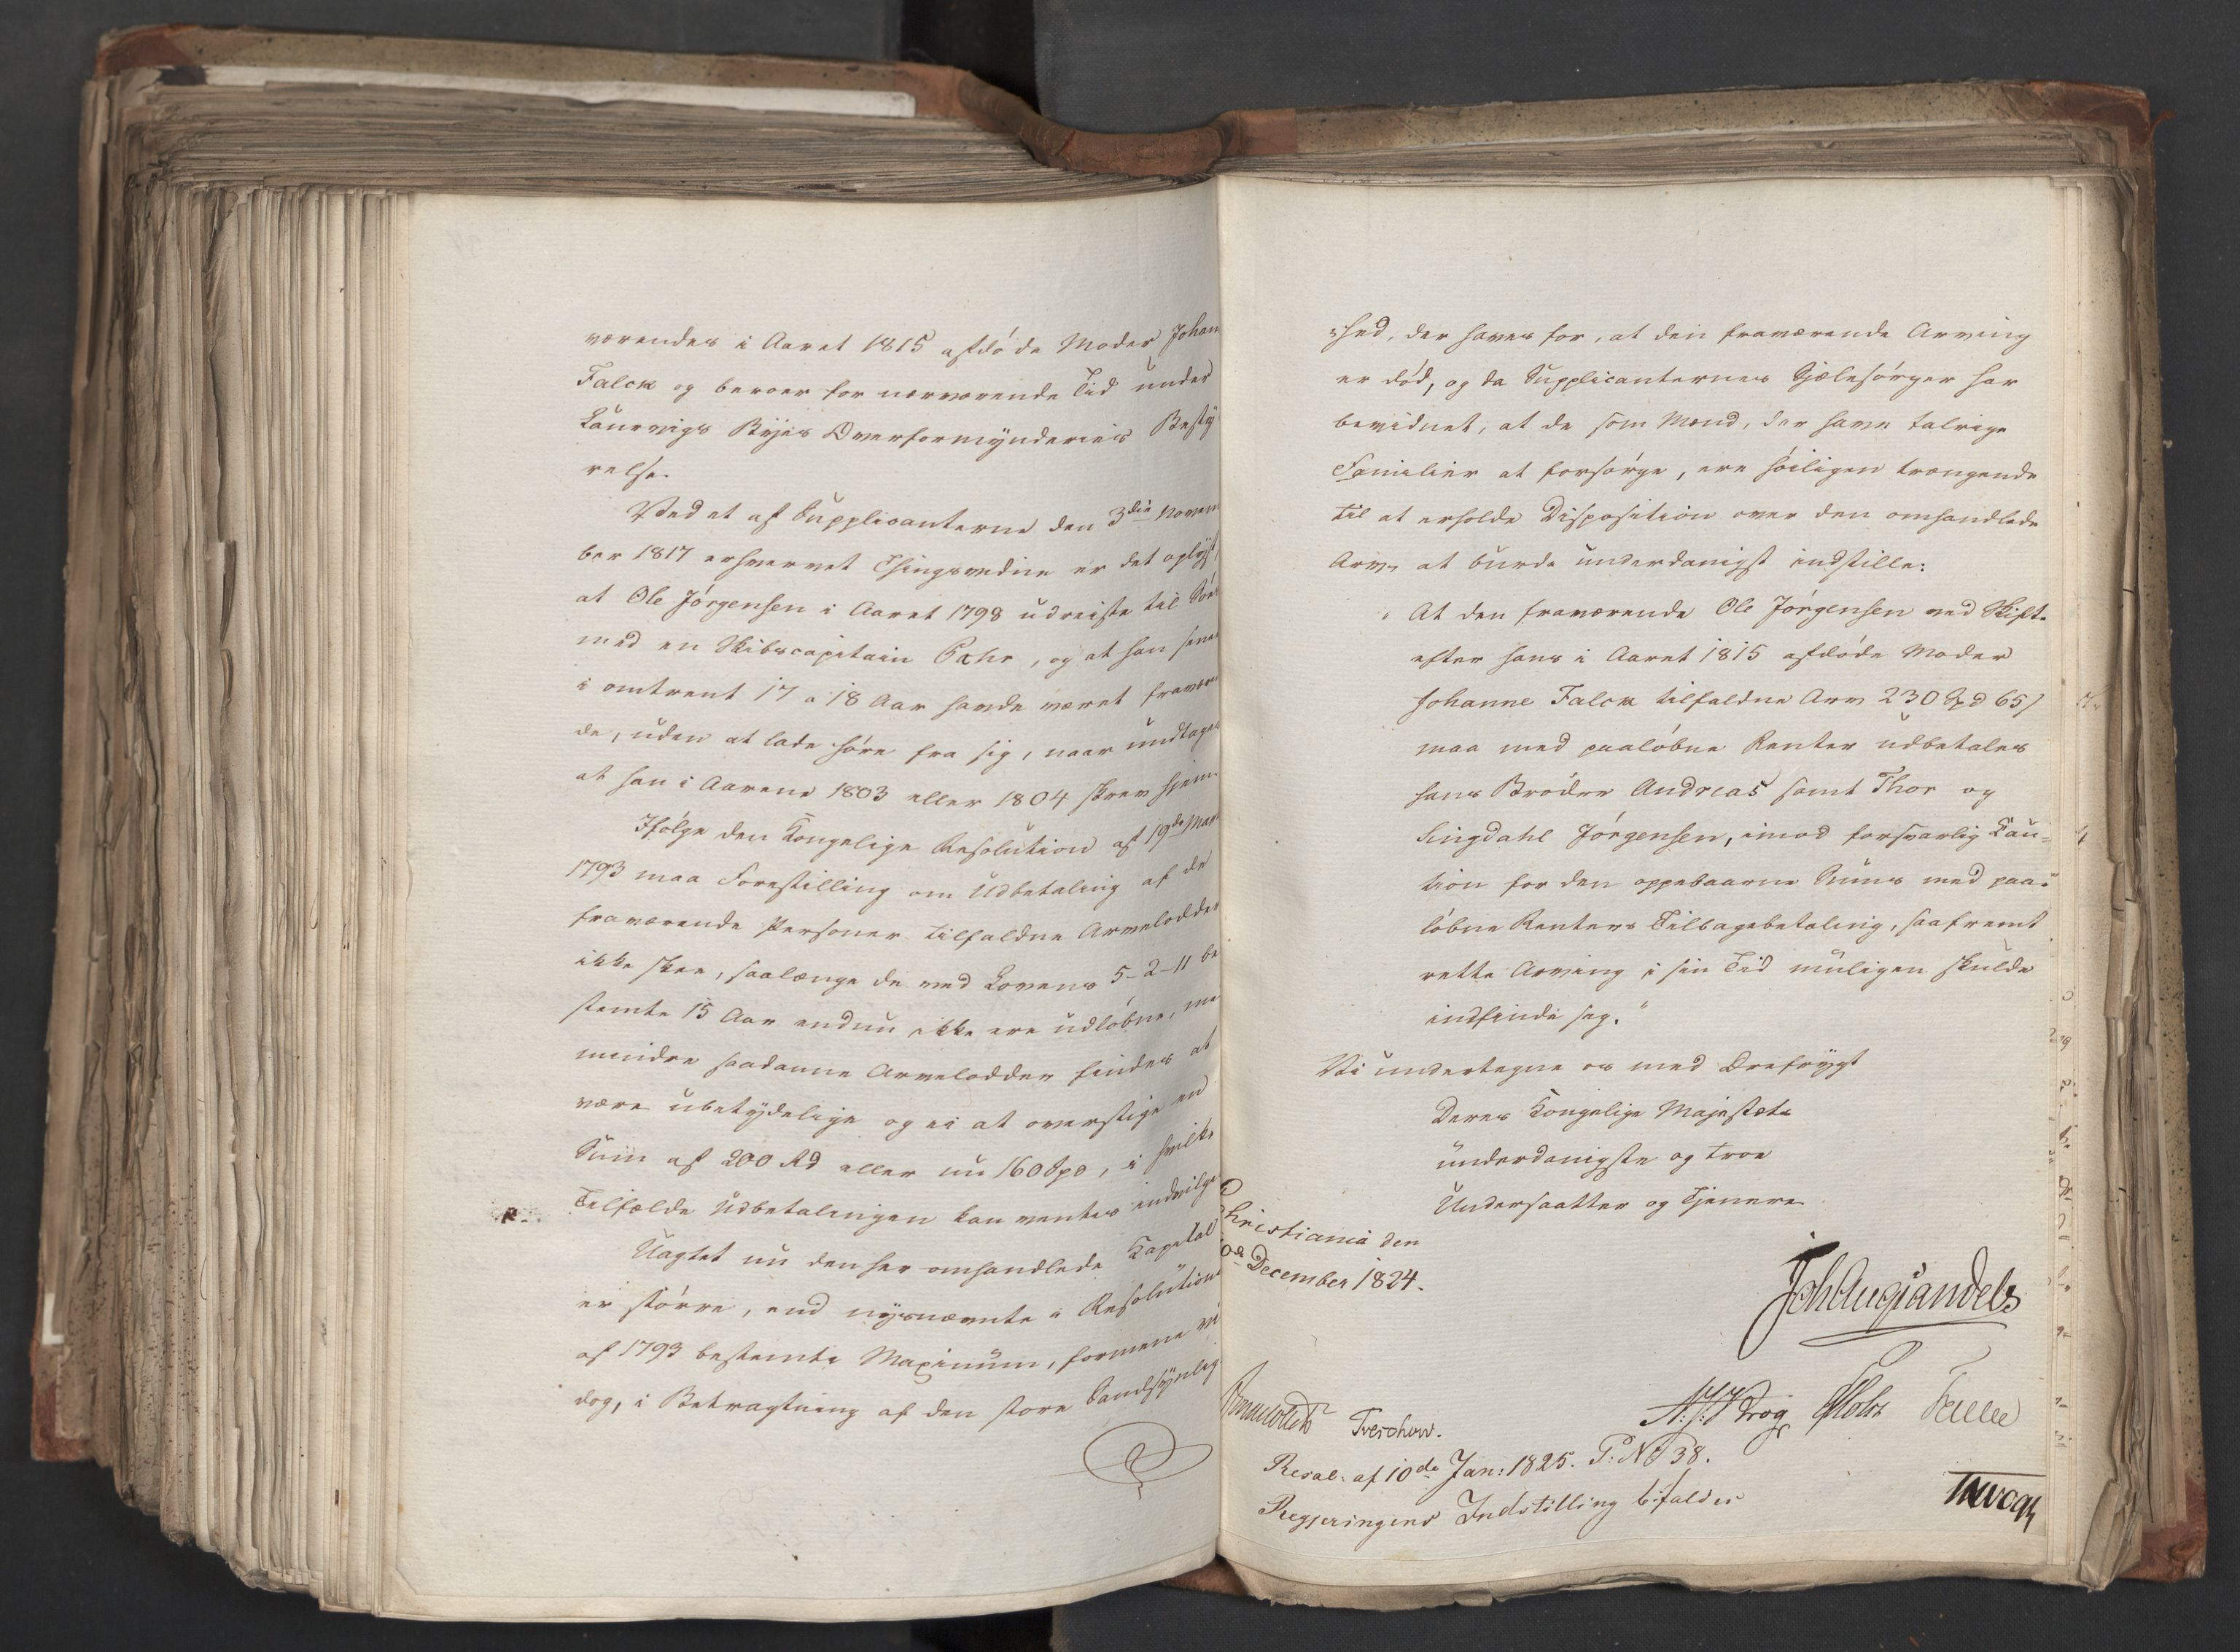 værendes i Aaret 1815 afdøde Moder Johan
Falck og beroer for nærværende Tid under
Laurvigs Byes Overformynderies Besty
relse.
Ved et af Supplicanterne den 3die Novem
ber 1817 erhvervet Thingsvidne er det oplyst,
at Ole Jørgensen i Aaret 1798 udreiste til Søes
med en Skibscapitain Bahr, og at han siden
i omtrent 17 a 18 Aar havde været fraværen
de, uden at lade høre fra sig, naar undtages
at han i Aarene 1803 eller 1804 skrev hjem.
Ifølge den Kongelige Resolution af 19de Mart
1793 maa Forestilling om Udbetaling af de
fraværende Personer tilfaldne Arvelodder
ikke skee, saalænge de ved Lovens 5-2-11 be
stemte 15 Aar endnu ikke ere udløbne, me
mindre saadanne Arvelodder findes at
være ubetydelige og ei at overstige en
Sum af 200 Rd eller nu 160 Spd, i hvilke
Tilfælde Udbetalingen kan ventes indvilget
Uagtet nu den her omhandlede Kapital
er større, end nysnævnte i Resolution
af 1793 bestemte Maximum, formene vi
dog, i Betragtning af den store Sandsynlig
=hed, der haves for, at den fraværende Arving
er død, og da Supplicanternes Sjælesørger har
bevidnet, at de som Mænd, der have talrige
Familier at forsørge, ere høiligen trængende
til at erholde Disposition over den omhandlede
Arv, at burde underdanigst indstille:
At den fraværende Ole Jørgensen ved Skifte
efter hans i Aaret 1815 afdøde Moder
Johanne Falck tilfaldne Arv 230 Spd 65 ß
maa med paaløbne Renter udbetales
hans Brødre Andreas samt Thor og
Lingdahl Jørgensen, imod forsvarlig Cau=
tion for den oppebaarne Sums med paa=
løbne Renters Tilbagebetaling, saafremt
rette Arving i sin Tid muligen skulde
indfinde sig."
Vi undertegne os med Ærefrygt
Deres Kongelige Majestæts
underdanigste og troe
Undersaatter og Tjenere
Christiania den
December 1824.
Joh Aug Sandels
Treschow.
Resol: af 10de Jan: 1825. P: No 38.
Regjeringens Indstilling bifaldes